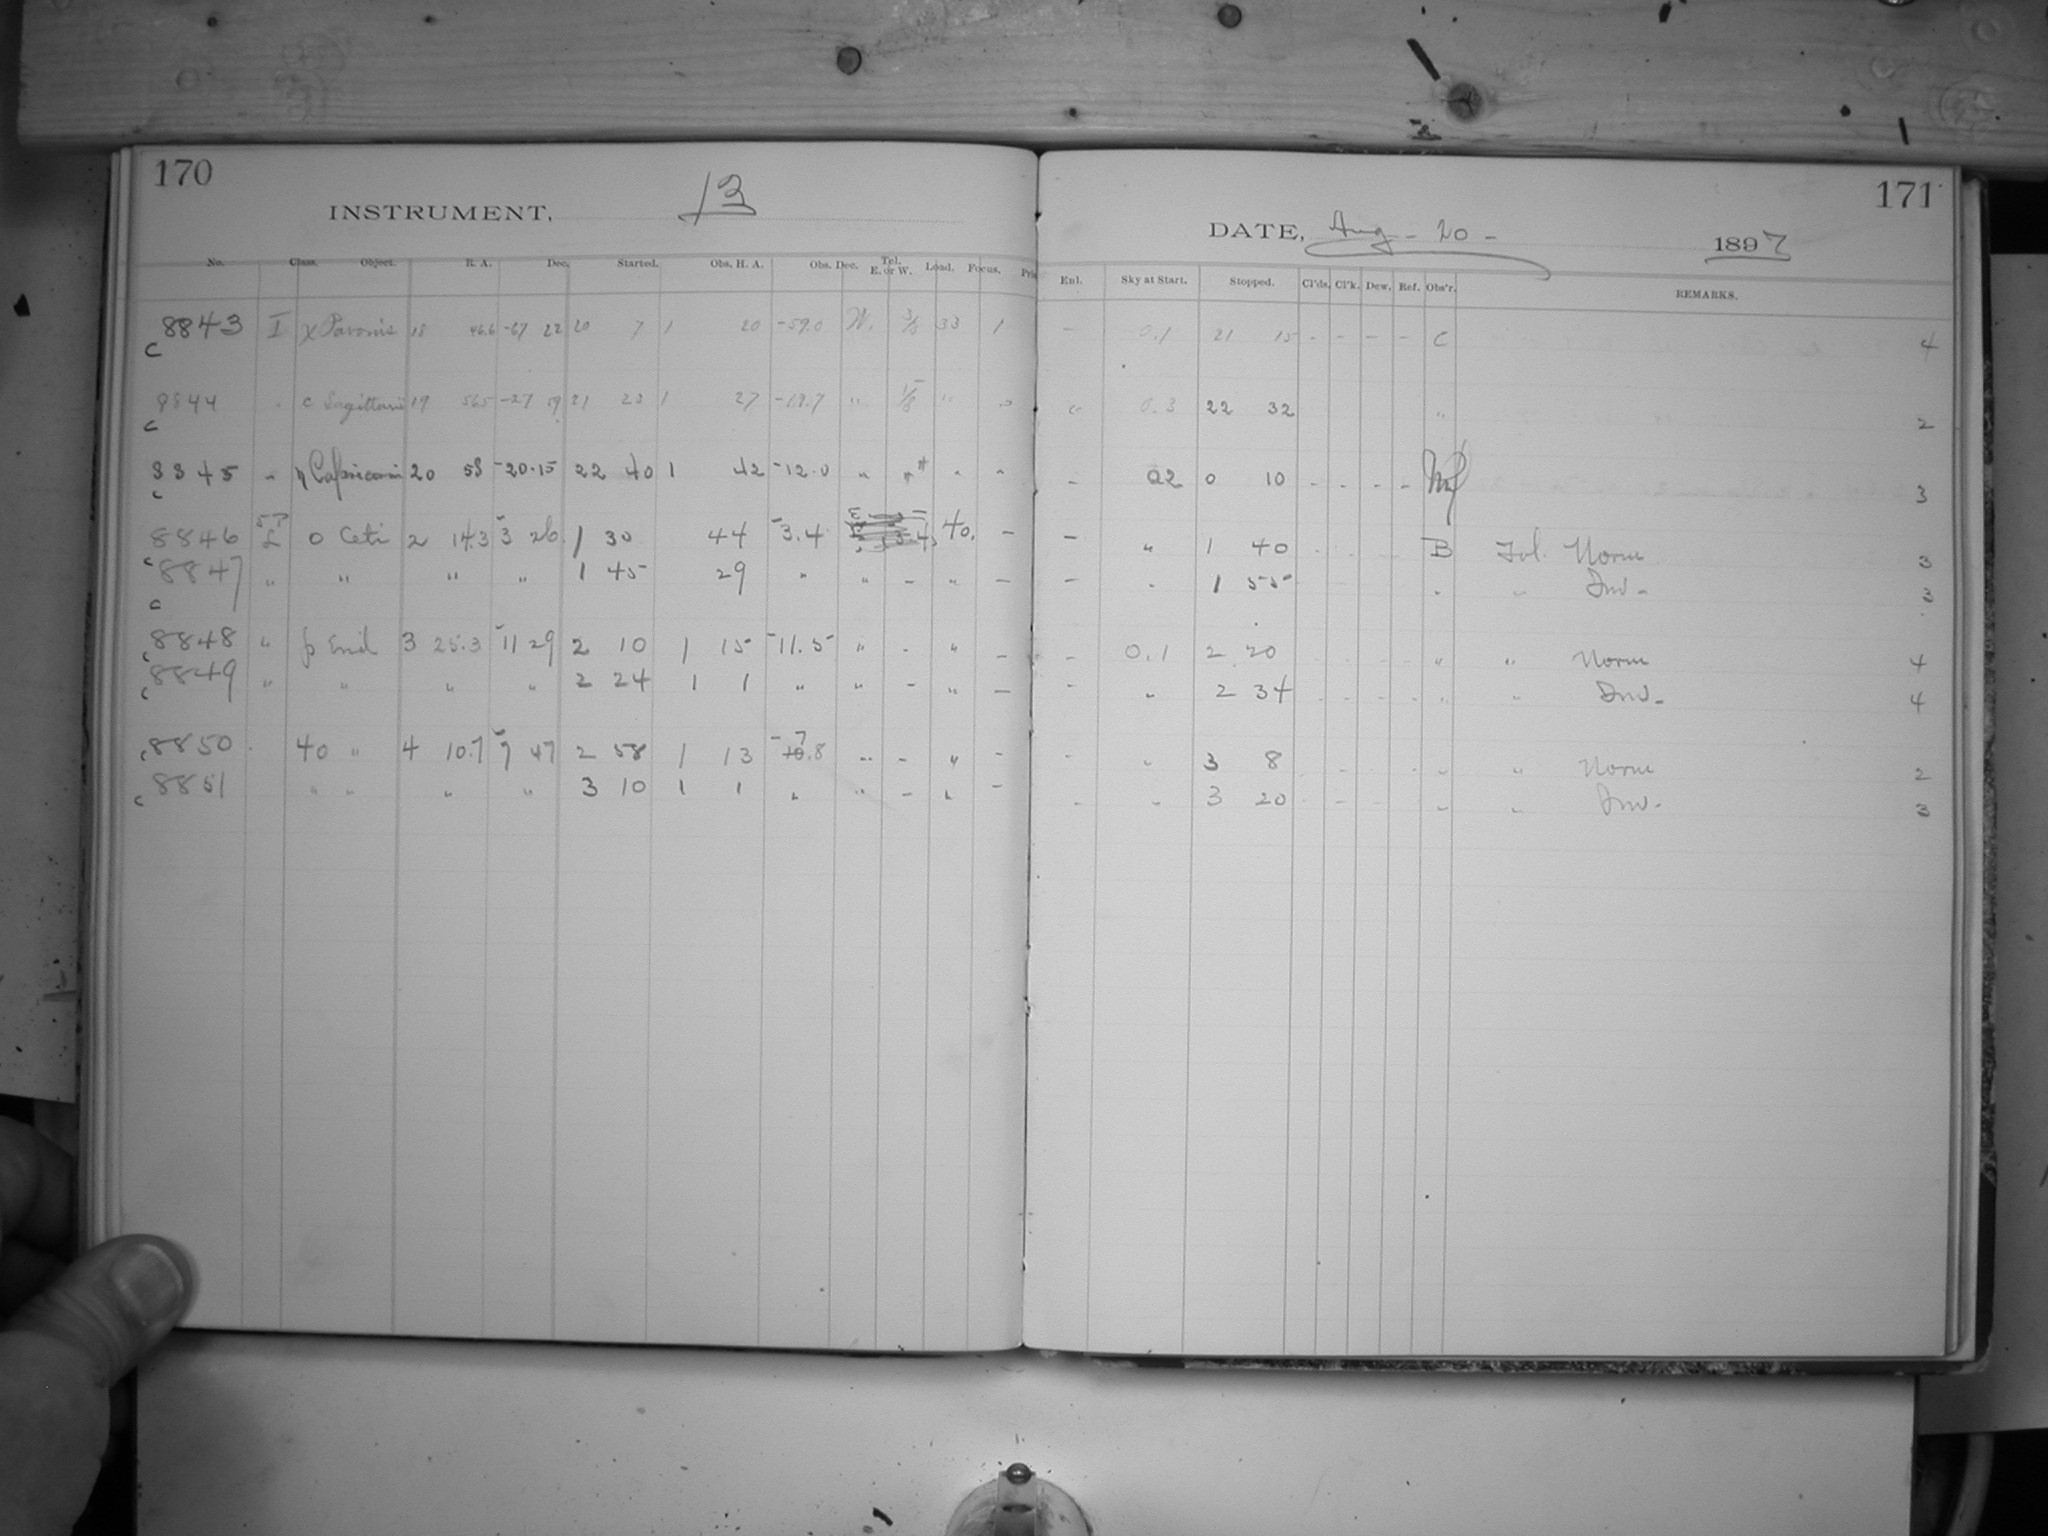 170
INSTRUMENT, 13
No. Class. Object. R. A. Dec. Started. Obs. H. A. Obs. Dec. Tel. E. or W. Load. Focus.
8843 I χ Pavonis 18 46.6 -67 22 20 7 1 20 -59.0 W. 3/8 33 1
c
8844 " c Sagittarii 19 56.5 -27 59 21 23 1 27 -19.7 " 1/8 " "
c
8845 " η Capricorni 20 58 -20.15 22 40 1 42 -12.0 " " " "
c
8846 o Ceti 2 14.3 -3 26 1 30 44 -3.4 E 40. -
c
8847 " " " " 1 45 29 " " - " -
c
8848 " p Erid 3 25.3 -11 29 2 10 1 15 -11.5 " - " -
c
8849 " " " " 2 24 1 1 " " - " -
c
8850 40 " 4 10.7 -7 47 2 58 1 13 -7.8 " - " -
c
8851 " " " " 3 10 1 1 " " - " -
c
171
DATE, Aug - 20 - 1897
Enl. Sky at Start. Stopped. Cl'ds. Cl'k. Dew. Ref. Obs'r. REMARKS.
- 0.1 21 15 - - - - C 4
" 0.3 22 32 " 2
- 02 0 10 - - - - 3
- " 1 40 - - - - B Norm 3
- " 1 55 " " Inv - 3
- 0.1 2 20 - - - - " " Norm 4
- " 2 34 - - - - " " Inv - 4
- " 3 8 - - " " Norm 2
- " 3 20 - - - " " Inv - 3